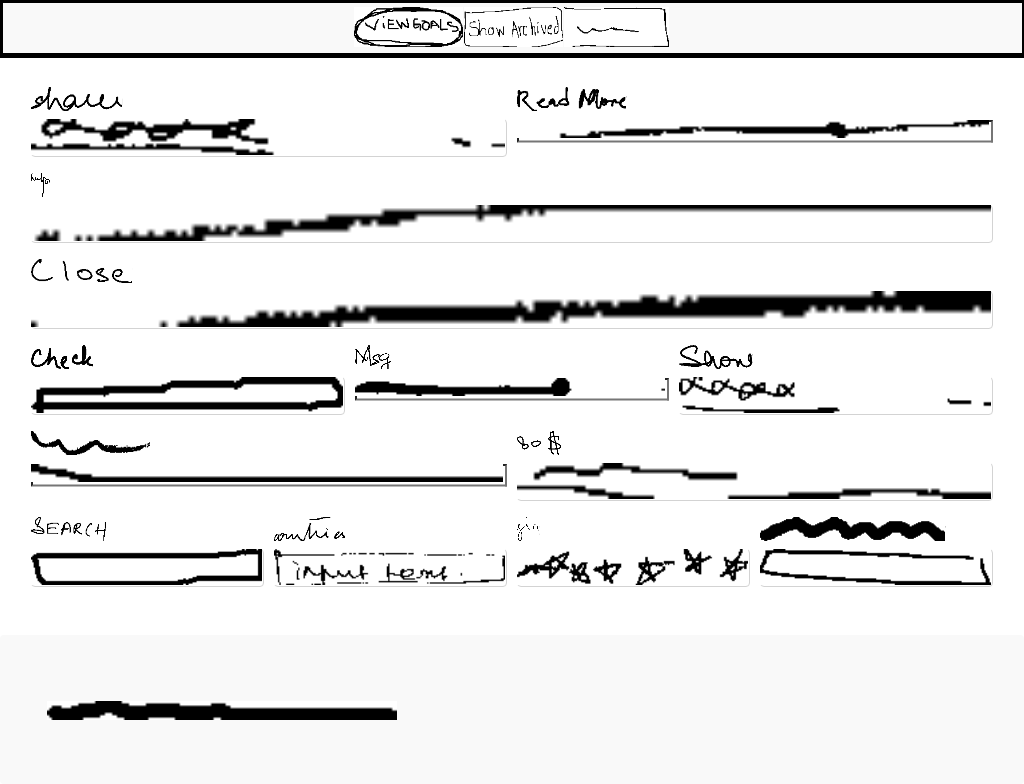 VIEWGOALS Show Archived
Read More
Close
Check Msg Show
80 $
SEARCH
input text.